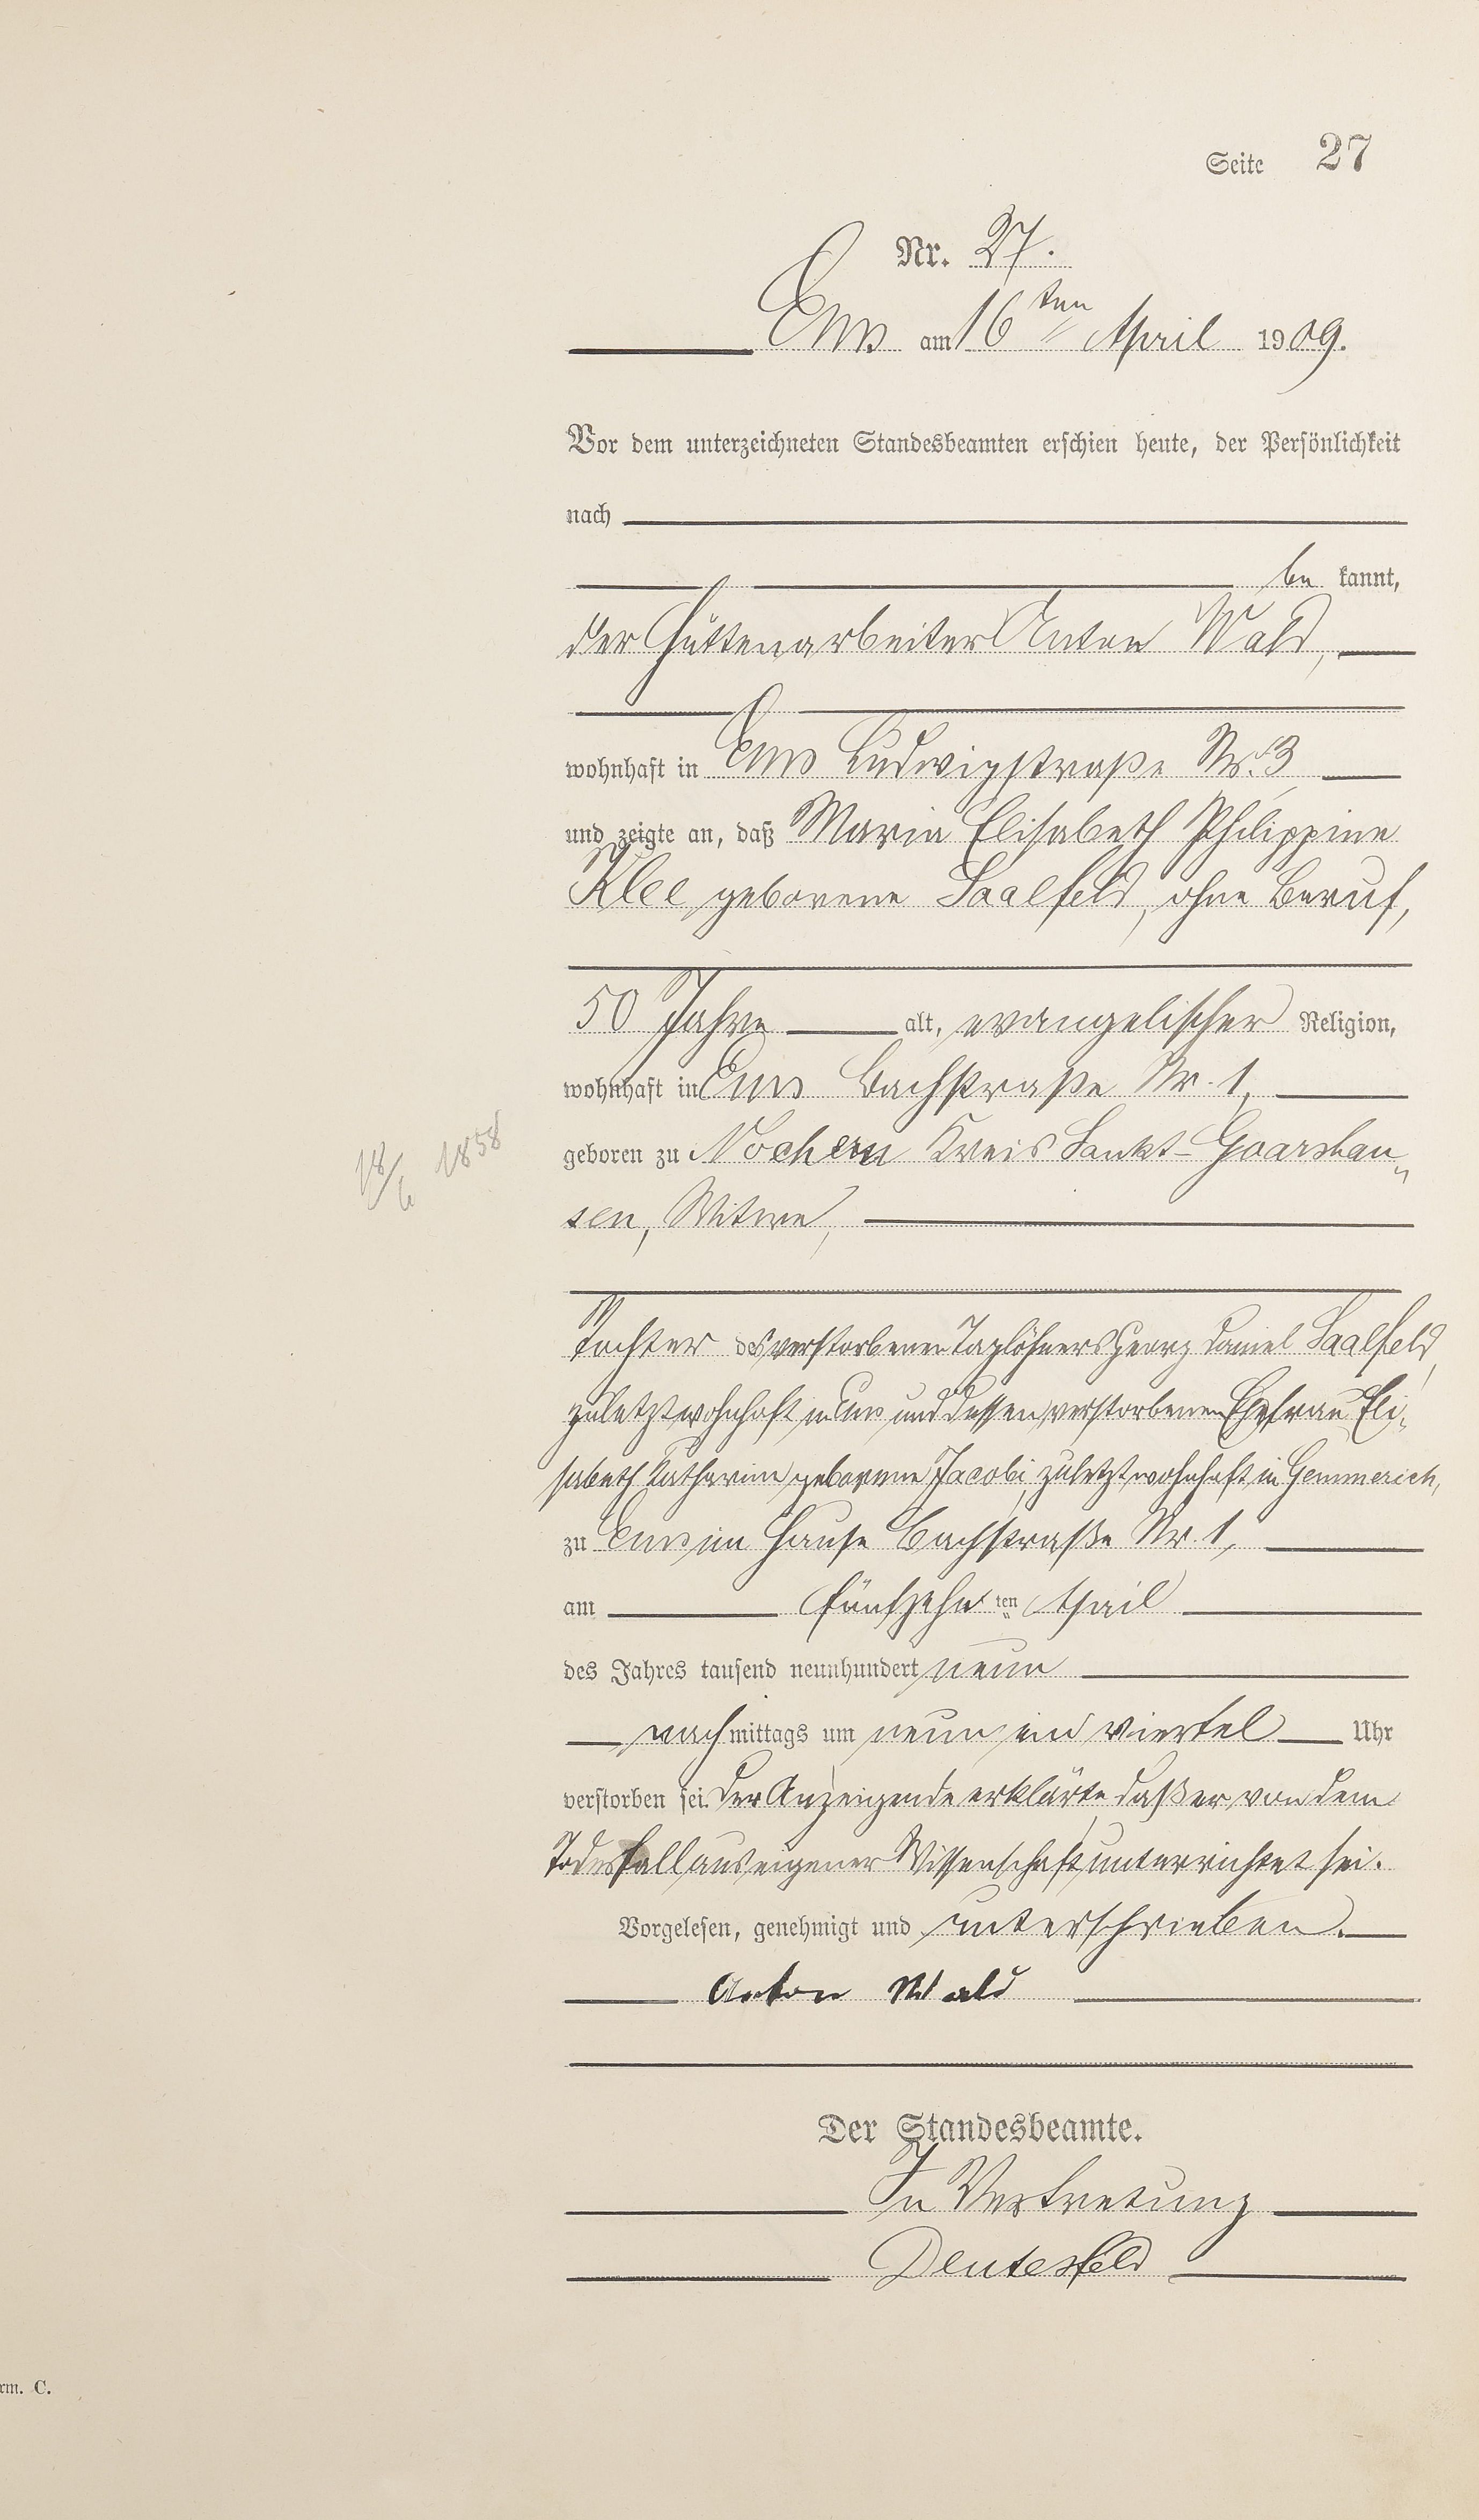 Seite 27
Nr. 27.
Ems am 16ten April 1909.
Vor dem unterzeichneten Standesbeamten erschien heute, der Persönlichkeit
nach
be kannt,
der Hüttenarbeiter Anton Wald,
wohnhaft in Ems Ludwigstraße Nr. 3
und zeigte an, daß Maria Elisabeth Philippine
Klee geborene Saalfeld, ohne Beruf,
50 Jahre alt, evangelischer Religion,
wohnhaft in Ems Bachstraße Nr. 1,
geboren zu Nochern Kreis Sankt-Goarshau„
18/6 1858
sen, Witwe,
Tochter des verstorbenen Taglöhners Georg Daniel Saalfeld,
zuletzt wohnhaft in Ems und dessen verstorbenen Ehefrau Eli„
sabeth Katharine geborene Jacobi, zuletzt wohnhaft in Gemmerich,
zu Ems im Hause Bachstraße Nr. 1,
am fünfzehn ten April
des Jahres tausend neunhundert neun
nach mittags um neun ein viertel Uhr
verstorben sei. Der Anzeigende erklärte, daß er von dem
Todesfall aus eigener Wissenschaft unterrichtet sei.
Vorgelesen, genehmigt und unterschrieben.
Anton Wald
Der Standesbeamte.
In Vertretung
Deutesfeld
rm. C.